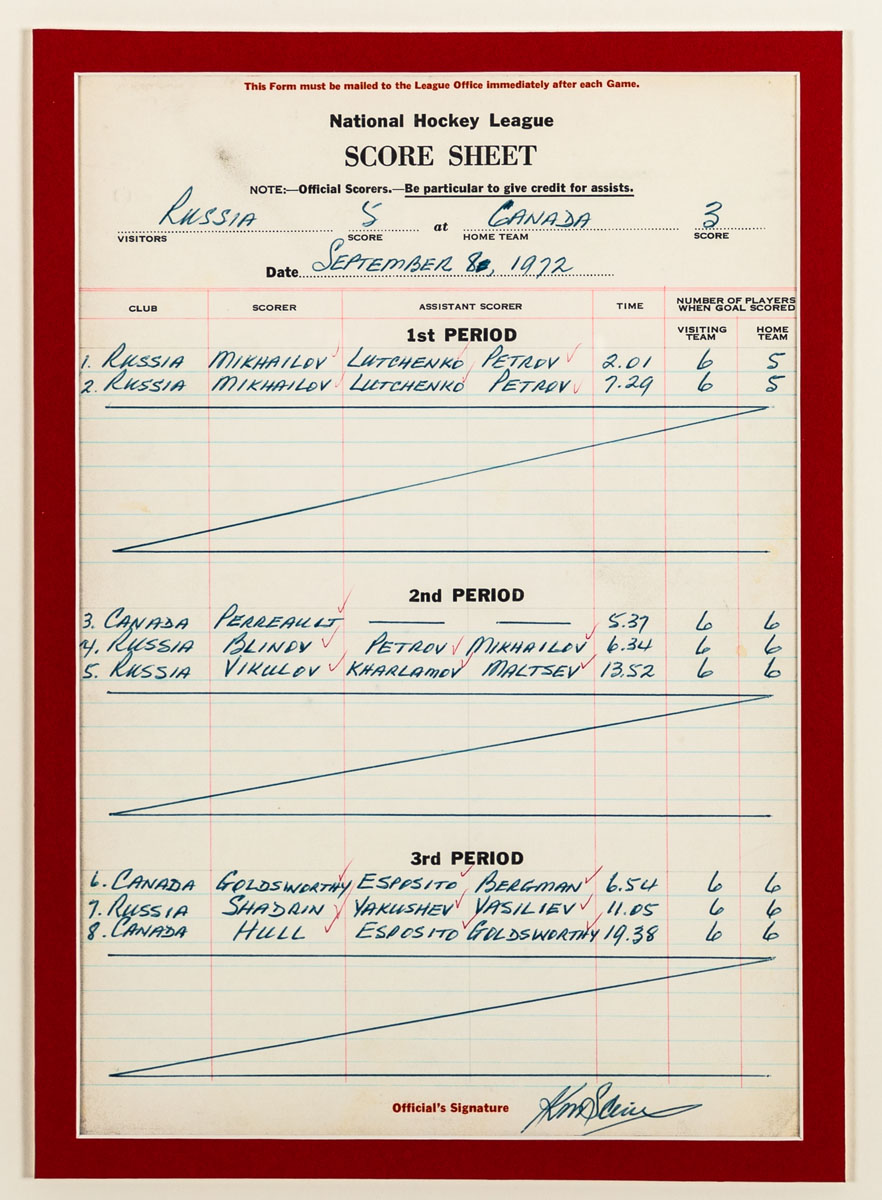 This Form must be mailed to the League Office immediately after each Game.
National Hockey League
SCORE SHEET
NOTE:—Official Scorers.—Be particular to give credit for assists.
RUSSIA 5 at CANADA 3
VISITORS SCORE HOME TEAM SCORE
Date SEPTEMBER 8, 1972
CLUB SCORER ASSISTANT SCORER TIME NUMBER OF PLAYERS WHEN GOAL SCORED
1st PERIOD VISITING TEAM HOME TEAM
1. RUSSIA MIKHAILOV LUTCHENKO PETROV 2.01 6 5
2. RUSSIA MIKHAILOV LUTCHENKO PETROV 7.29 6 5
2nd PERIOD
3. CANADA PERREAULT — — 5.37 6 6
4. RUSSIA BLINOV PETROV MIKHAILOV 6.34 6 6
5. RUSSIA VIKULOV KHARLAMOV MALTSEV 13.52 6 6
3rd PERIOD
6. CANADA GOLDSWORTHY ESPOSITO BERGMAN 6.54 6 6
7. RUSSIA SHADRIN YAKUSHEV VASILIEV 11.05 6 6
8. CANADA HULL ESPOSITO GOLDSWORTHY 19.38 6 6
Official's Signature